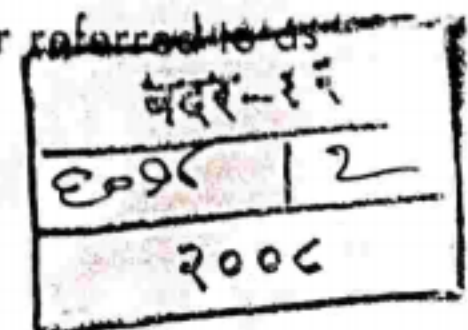 r referred to as
बदर-११
६०१८ | २
२००८